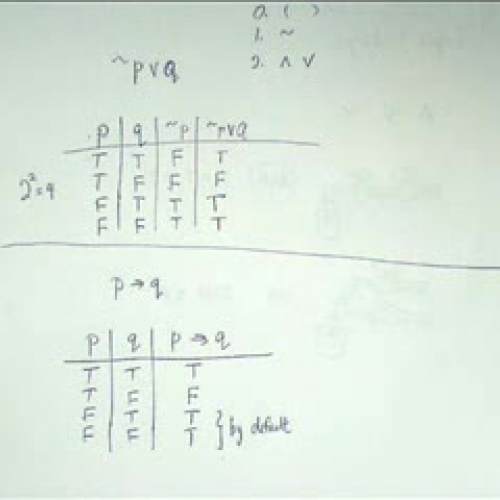 0. ( )
1. ~
2. ∧ ∨
~p∨q
p q ~p ~p∨q
T T F T
T F F F
2²=4
F T T T
F F T T
p→q
p q p→q
T T T
T F F
F T T
F F T
} by default